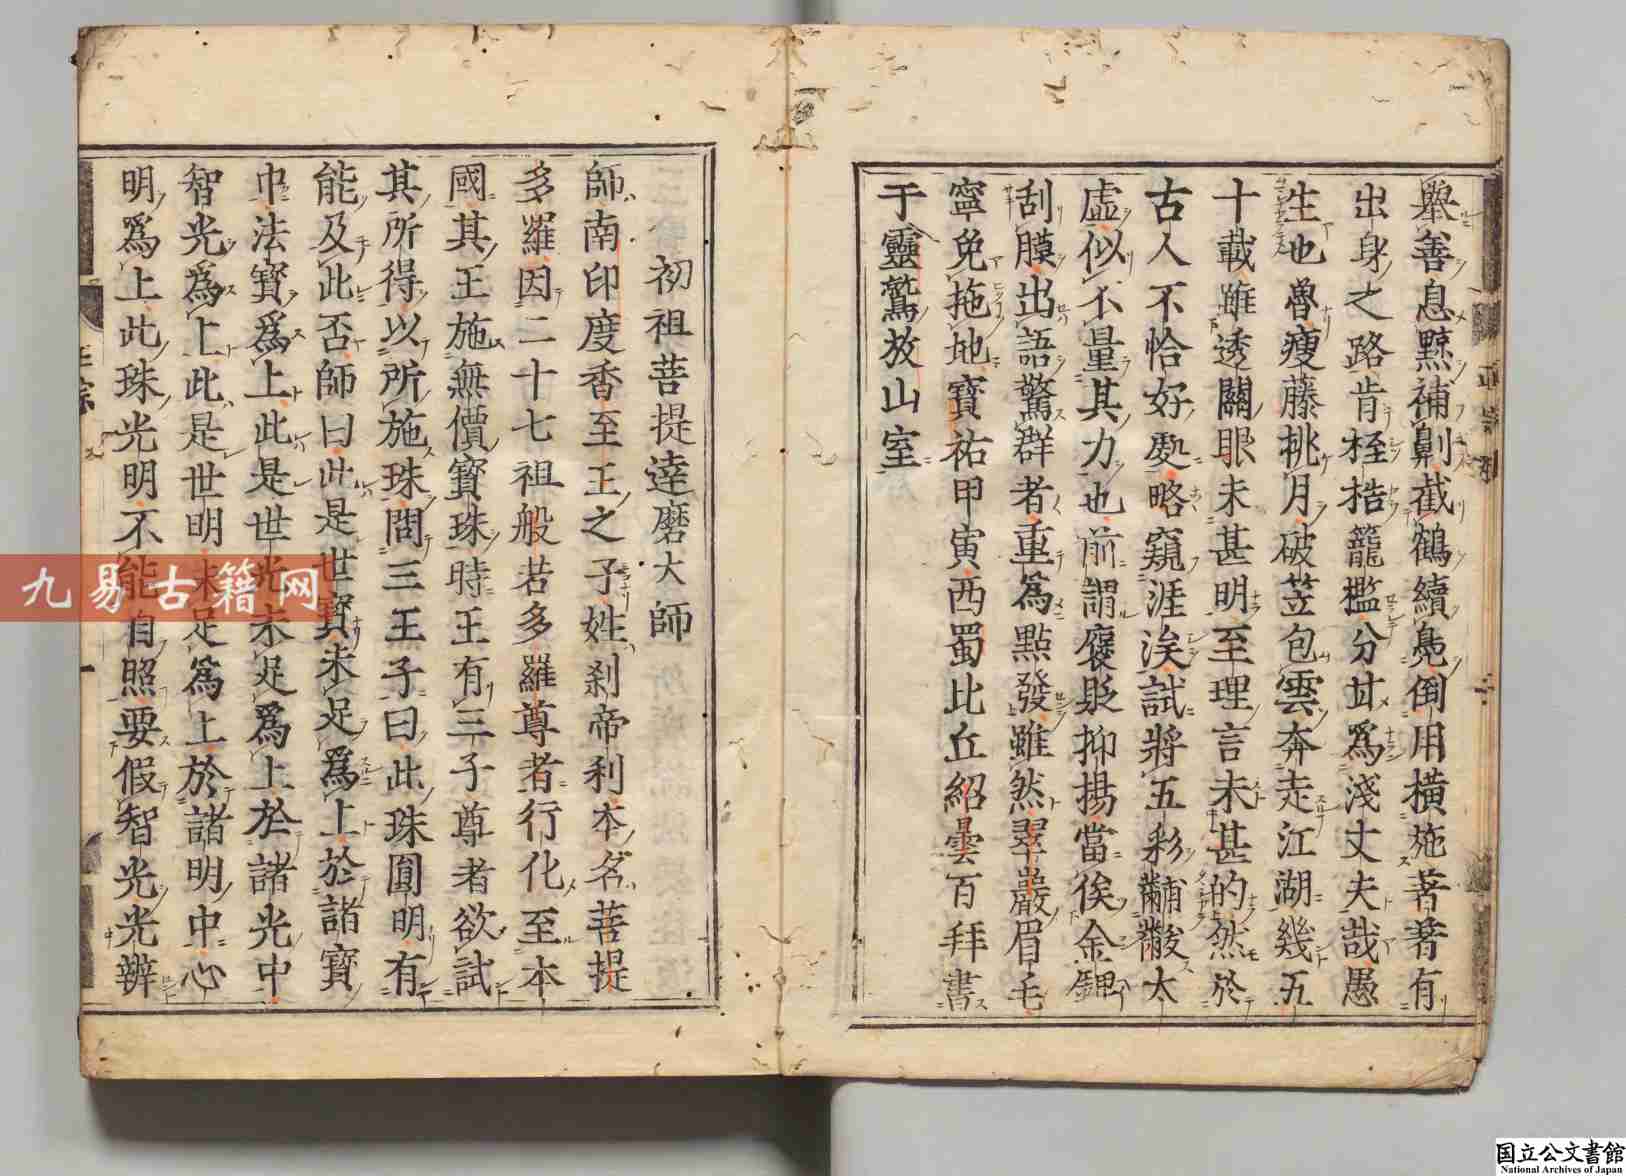 舉善息黥補劓截鶴續鳧倒用橫施著著有
出身之路肯桎梏籠檻分甘爲淺丈夫哉愚
生也魯瘦藤挑月破笠包雲奔走江湖幾五
十載雖透關眼未甚明至理言未甚的然於
古人不恰好處略窺涯涘試將五彩黼黻太
虛似不量其力也前謂褒貶抑揚當俟金鎞
刮膜出語驚群者重爲點發雖然翠巖眉毛
寧免拖地寶祐甲寅西蜀比丘紹曇百拜書
于靈鷲放山室
初祖菩提達磨大師
師南印度香至王之子姓刹帝利本名菩提
多羅因二十七祖般若多羅尊者行化至本
國其王施無價寶珠時王有三子尊者欲試
其所得以所施珠問三王子曰此珠圓明有
能及此否師曰此是世寶未足爲上於諸寶
中法寶爲上此是世光未足爲上於諸光中
智光爲上此是世明未足爲上於諸明中心
明爲上此珠光明不能自照要假智光光辨
正宗
一
九易古籍网
国立公文書館
National Archives of Japan